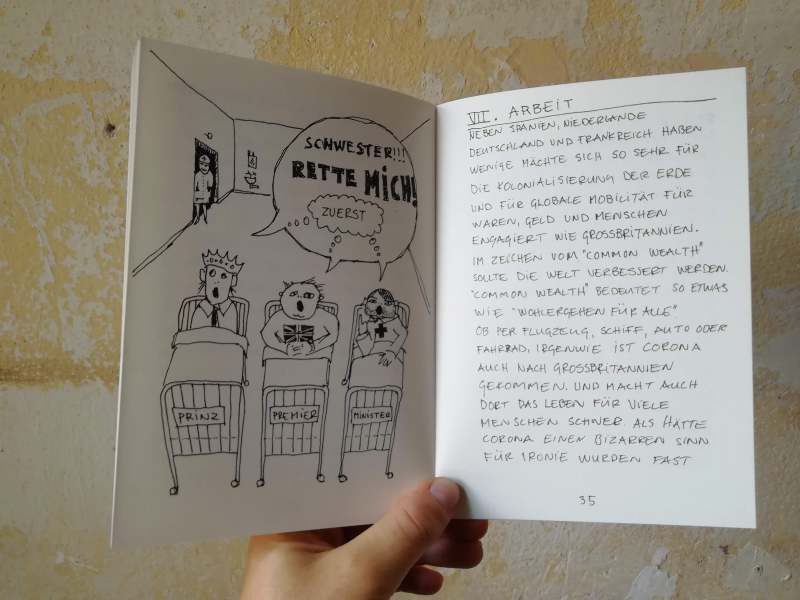 SCHWESTER!!!
RETTE MICH!
ZUERST
PRINZ
PREMIER
MINISTER
VII. ARBEIT
NEBEN SPANIEN, NIEDERLANDE
DEUTSCHLAND UND FRANKREICH HABEN
WENIGE MÄCHTE SICH SO SEHR FÜR
DIE KOLONIALISIERUNG DER ERDE
UND FÜR GLOBALE MOBILITÄT FÜR
WAREN, GELD UND MENSCHEN
ENGAGIERT WIE GROSSBRITANNIEN.
IM ZEICHEN VOM "COMMON WEALTH"
SOLLTE DIE WELT VERBESSERT WERDEN.
"COMMON WEALTH" BEDEUTET SO ETWAS
WIE "WOHLERGEHEN FÜR ALLE"
OB PER FLUGZEUG, SCHIFF, AUTO ODER
FAHRRAD, IRGENWIE IST CORONA
AUCH NACH GROSSBRITANNIEN
GEKOMMEN. UND MACHT AUCH
DORT DAS LEBEN FÜR VIELE
MENSCHEN SCHWER. ALS HÄTTE
CORONA EINEN BIZARREN SINN
FÜR IRONIE WURDEN FAST
35